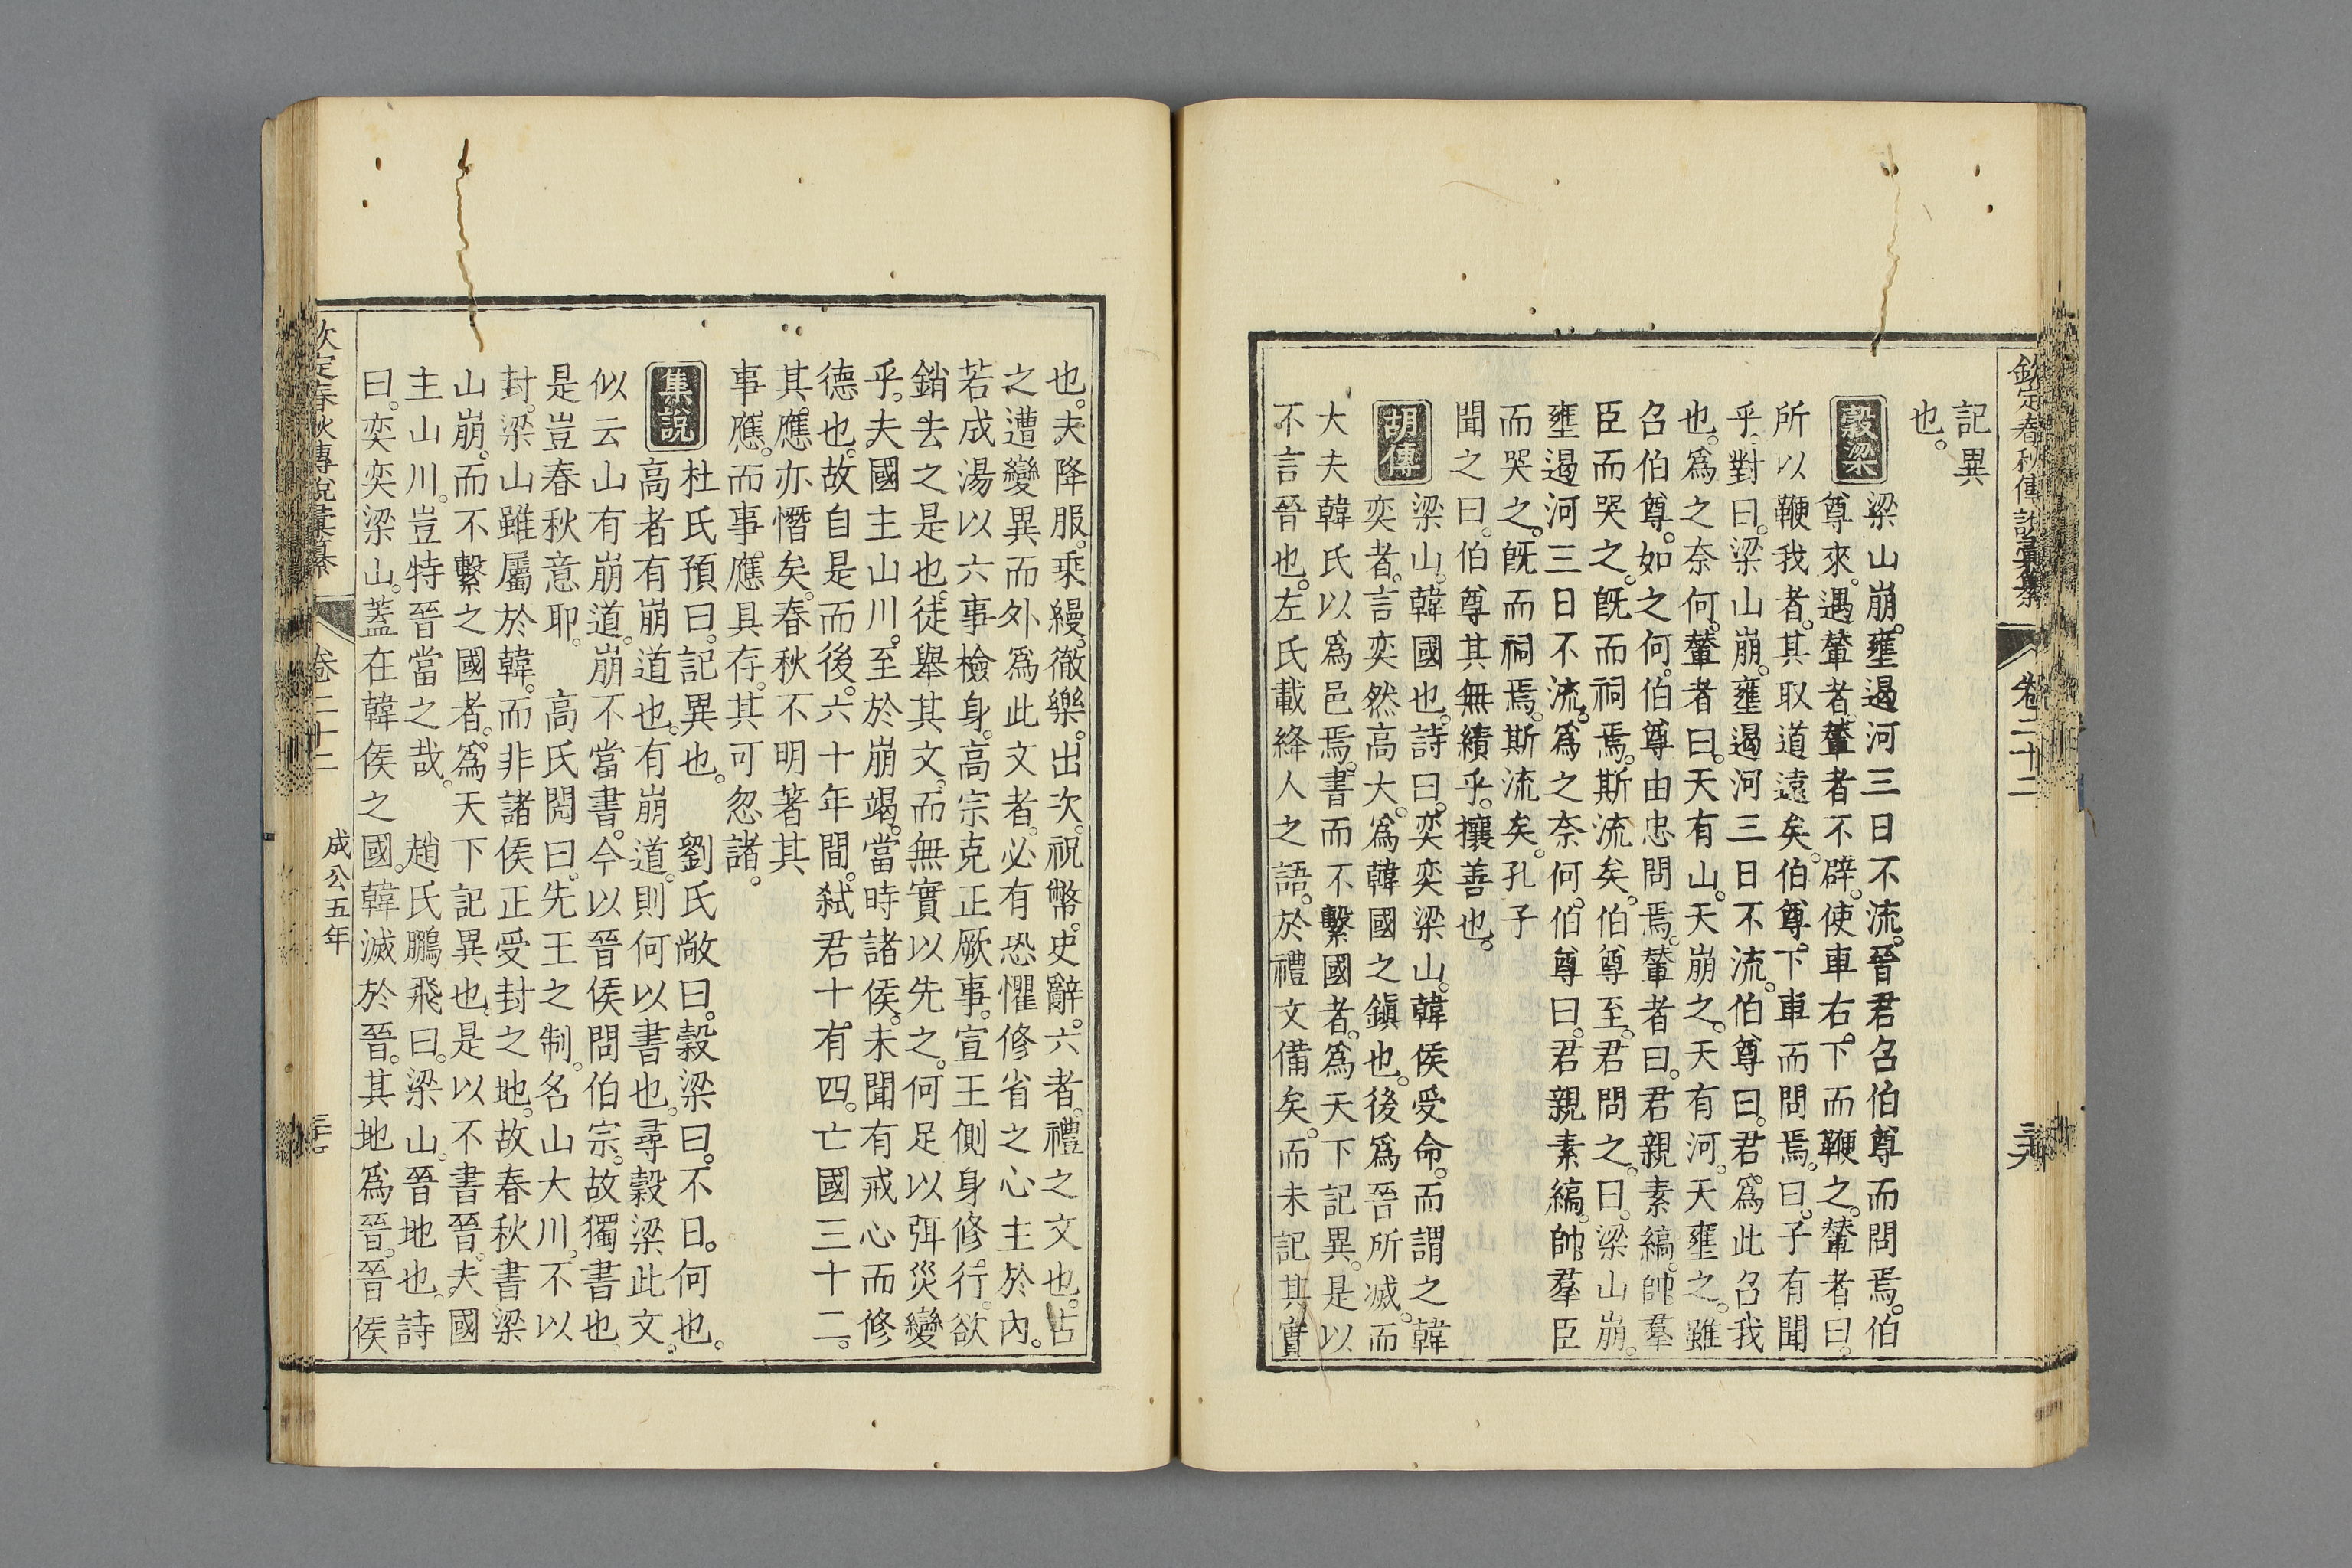 欽定春秋傳說彙纂 卷二十二
記異
也。
穀梁
梁山崩。壅遏河三日不流。晉君召伯尊而問焉。伯
尊來。遇輦者。輦者不辟。使車右。下而鞭之。輦者曰。
所以鞭我者。其取道遠矣。伯尊。下車而問焉。曰。子有聞
乎。對曰。梁山崩。壅遏河三日不流。伯尊曰。君。爲此召我
也。爲之奈何。輦者曰。天有山。天崩之。天有河。天壅之。雖
召伯尊。如之何。伯尊由忠問焉。輦者曰。君親素縞。帥羣
臣而哭之。旣而祠焉。斯流矣。伯尊至。君問之。曰。梁山崩。
壅遏河三日不流。爲之奈何。伯尊曰。君親素縞。帥羣臣
而哭之。旣而祠焉。斯流矣。孔子
聞之曰。伯尊其無績乎。攘善也。
胡傳
梁山。韓國也。詩曰。奕奕梁山。韓侯受命。而謂之韓
奕者。言奕然高大。爲韓國之鎭也。後爲晉所滅。而
大夫韓氏以爲邑焉。書而不繫國者。爲天下記異。是以
不言晉也。左氏載絳人之語。於禮文備矣。而未記其實
也。夫降服。乘縵。徹樂。出次。祝幣。史辭。六者。禮之文也。古
之遭變異而外爲此文者。必有恐懼修省之心主於內。
若成湯以六事檢身。高宗克正厥事。宣王側身修行。欲
銷去之是也。徒舉其文。而無實以先之。何足以弭災變
乎。夫國主山川。至於崩竭。當時諸侯。未聞有戒心而修
德也。故自是而後。六十年間。弒君十。有四。亡國三十二。
其應亦憯矣。春秋不明著其
事應。而事應具存。其可忽諸。
集說
杜氏預曰。記異也。 劉氏敞曰。穀梁曰。不日。何也。
高者有崩道也。有崩道。則何以書也。尋穀梁此文。
似云山有崩道。崩不當書。今以晉侯問伯宗。故獨書也。
是豈春秋意耶。 高氏閌曰。先王之制。名山大川。不以
封。梁山雖屬於韓。而非諸侯正受封之地。故春秋書梁
山崩。而不繫之國者。爲天下記異也。是以不書晉。夫國
主山川。豈特晉當之哉。 趙氏鵬飛曰。梁山。晉地也。詩
曰。奕奕梁山。蓋在韓侯之國。韓滅於晉。其地爲晉。晉侯
欽定春秋傳說彙纂 卷二十二 成公五年